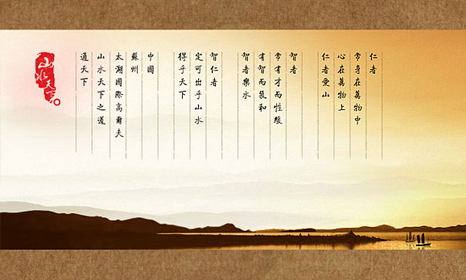 仁者
常身在萬物中
心在萬物上
仁者愛山
智者
常有才而性緩
有智而氣和
智者樂水
智仁者
定可出乎山水
得乎天下
中國
蘇州
太湖國際高爾夫
山水天下之道
通天下
山水天下